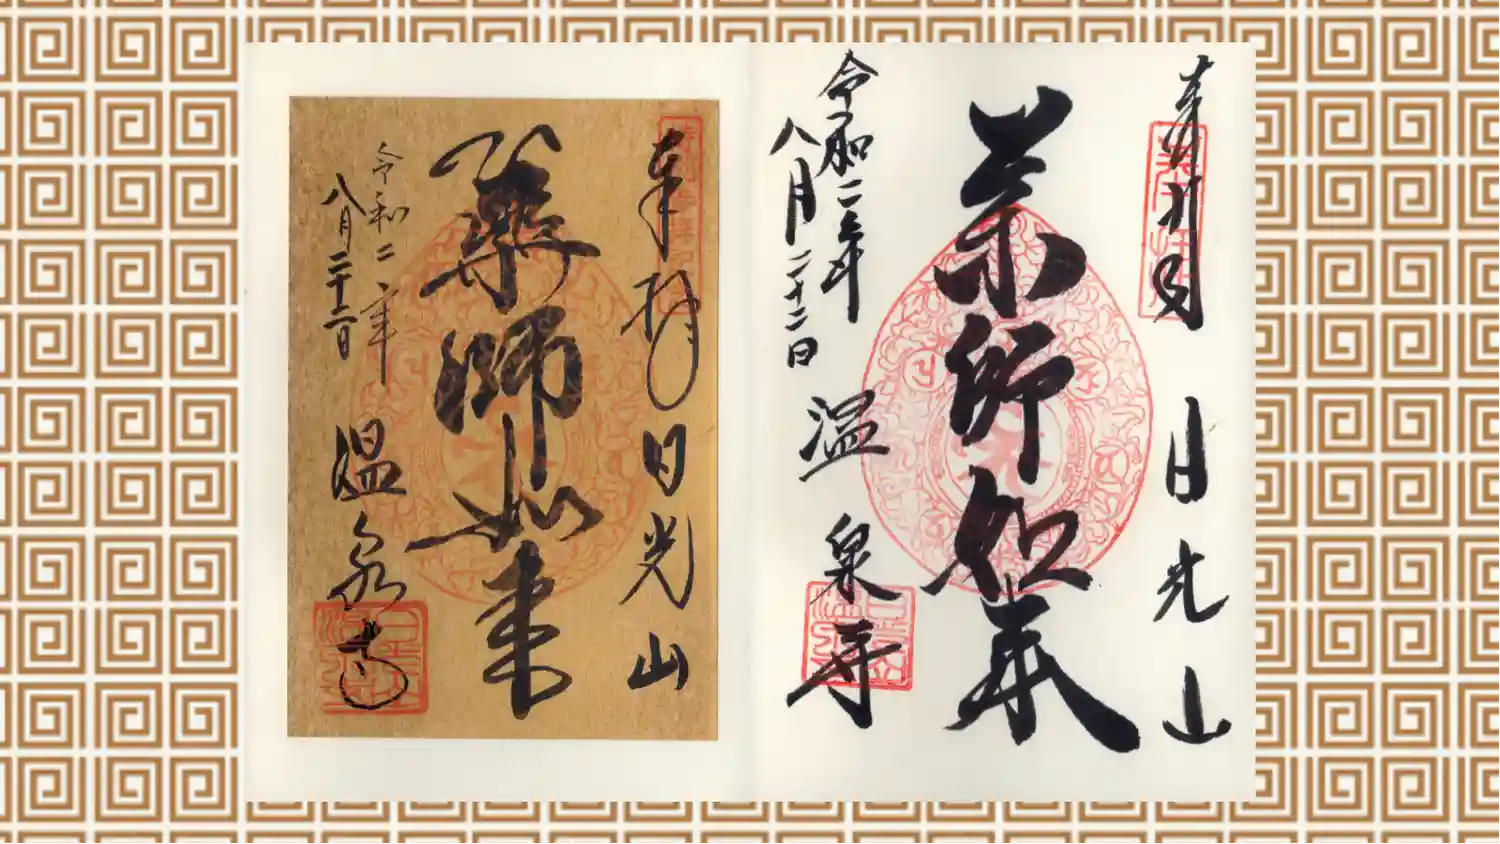 奉拝
日光山
薬師如来
令和二年
八月二十二日
温泉寺
奉拝
日光山
薬師如来
令和二年
八月二十二日
温泉寺